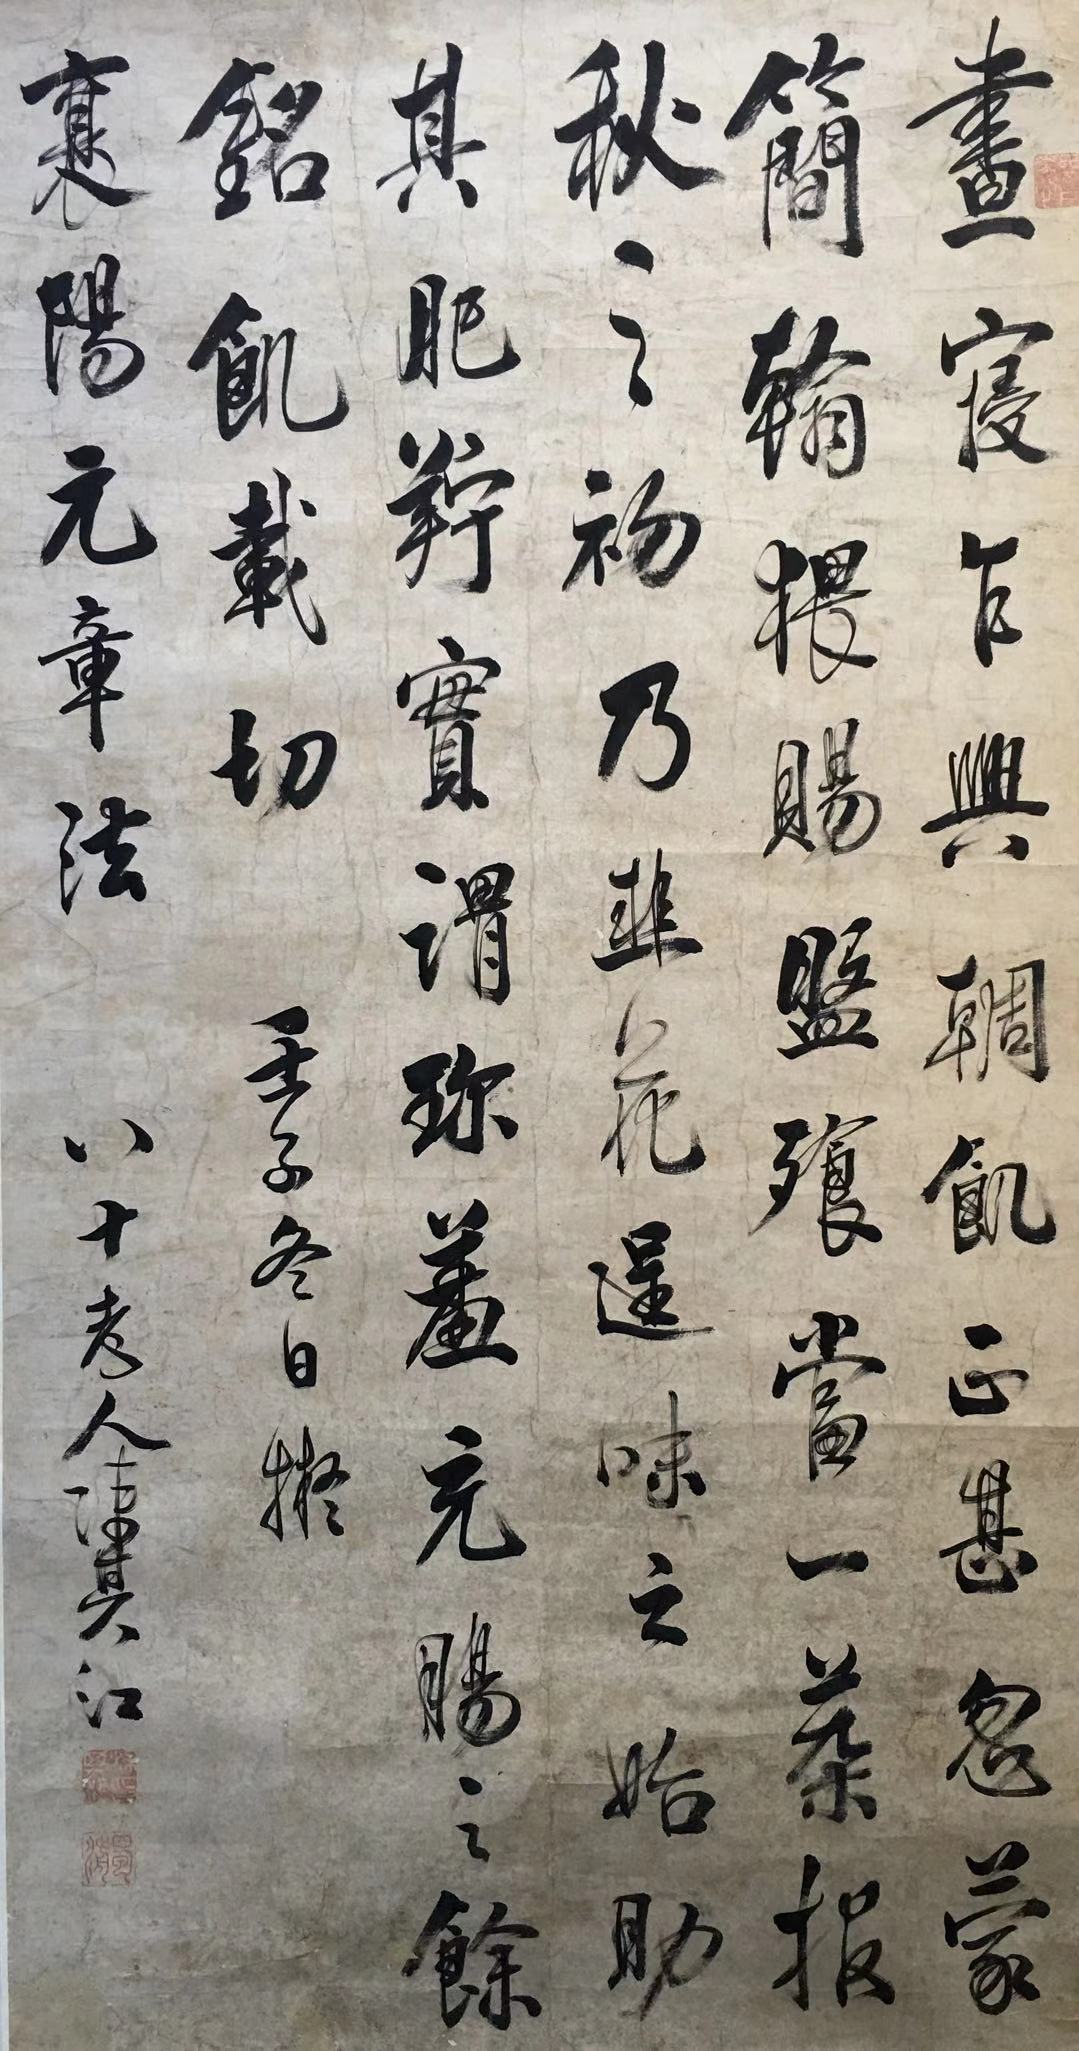 晝寢乍興輖飢正甚忽蒙
簡翰猥賜盤飧當一葉報
秋之初乃韭花逞味之始助
其肥羜實謂珍羞充腸之餘
銘飢載切 壬子冬日擬
襄陽元章法 八十老人陳江